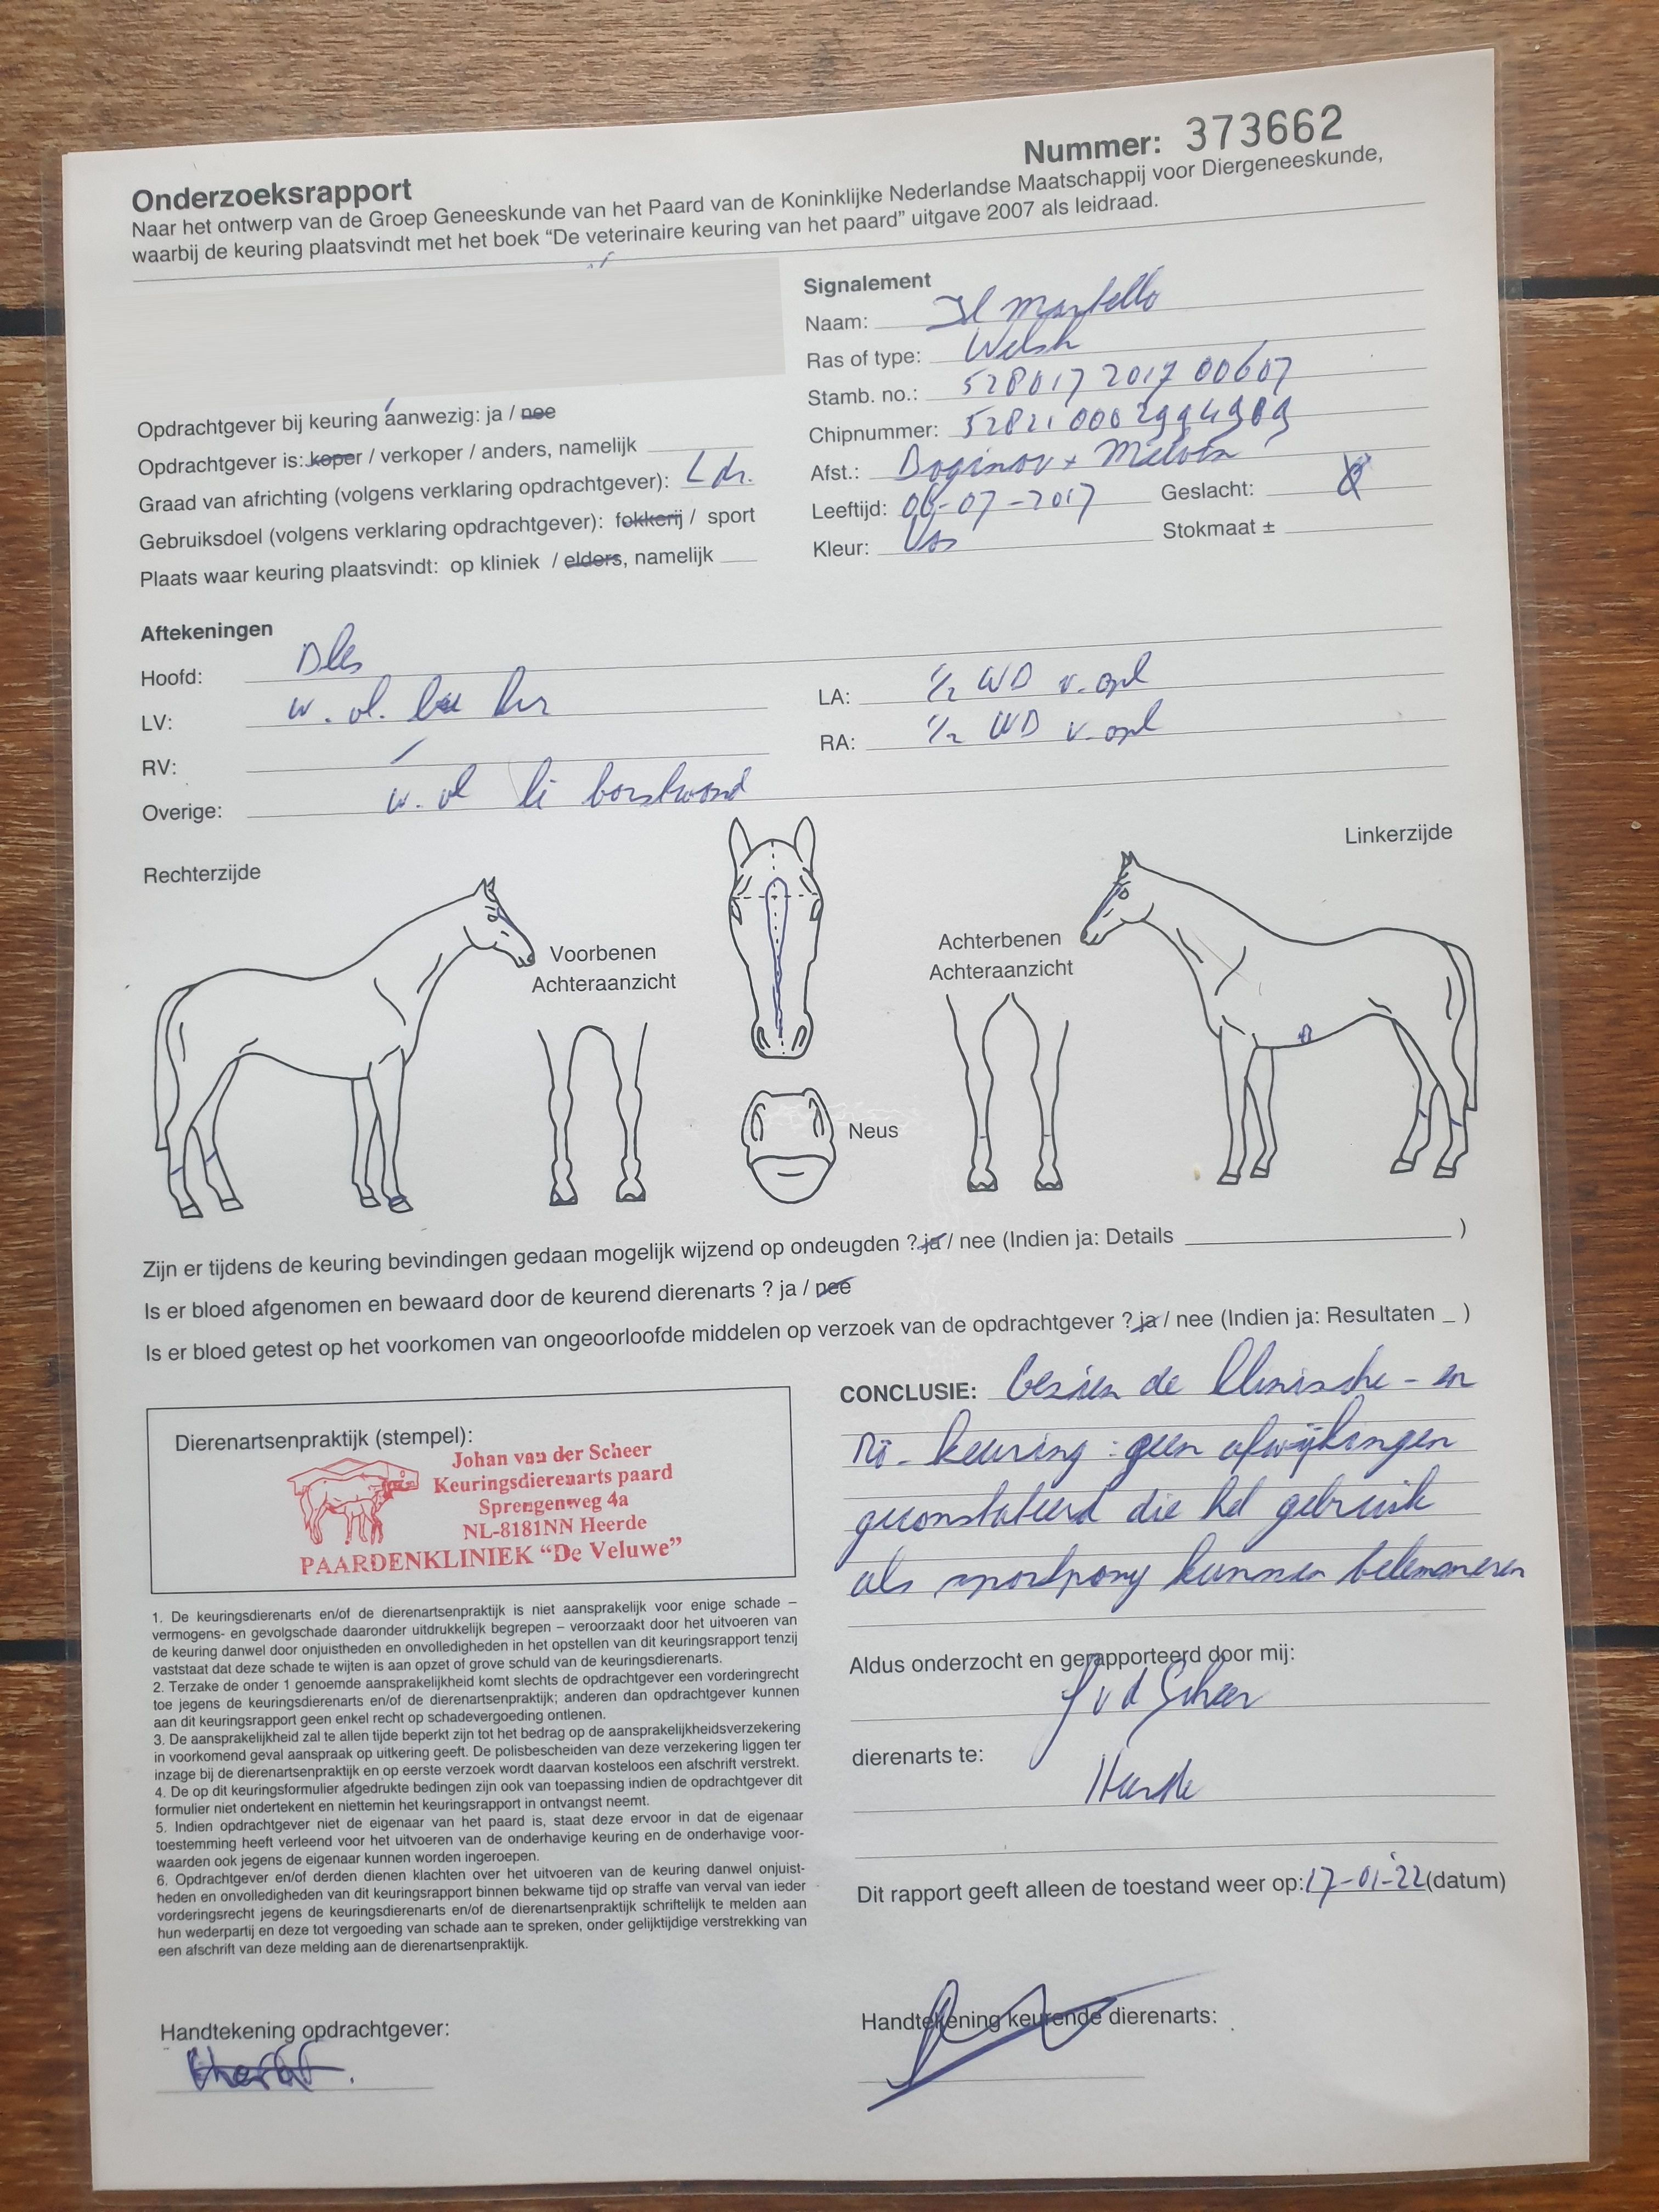 Nummer: 373662
Onderzoeksrapport
Naar het ontwerp van de Groep Geneeskunde van het Paard van de Koninklijke Nederlandse Maatschappij voor Diergeneeskunde,
waarbij de keuring plaatsvindt met het boek “De veterinaire keuring van het paard” uitgave 2007 als leidraad.
Opdrachtgever bij keuring aanwezig: ja / nee
Opdrachtgever is: koper / verkoper / anders, namelijk
Graad van africhting (volgens verklaring opdrachtgever): L dr.
Gebruiksdoel (volgens verklaring opdrachtgever): fokkerij / sport
Plaats waar keuring plaatsvindt: op kliniek / elders, namelijk
Signalement
Naam: Il Martello
Ras of type: Welsh
Stamb. no.: 528017 2017 00607
Chipnummer: 528210002994909
Afst.: x
Leeftijd: 06-07-2017 Geslacht:
Kleur: Vos Stokmaat ±
Aftekeningen
Hoofd: Bles
LV: w. vl.
RV:
Overige: w. vl li borstwand
LA: 1/2 WB v. opl
RA: 1/2 WB v. opl
Rechterzijde
Linkerzijde
Voorbenen
Achteraanzicht
Achterbenen
Achteraanzicht
Neus
Zijn er tijdens de keuring bevindingen gedaan mogelijk wijzend op ondeugden ? ja / nee (Indien ja: Details )
Is er bloed afgenomen en bewaard door de keurend dierenarts ? ja / nee
Is er bloed getest op het voorkomen van ongeoorloofde middelen op verzoek van de opdrachtgever ? ja / nee (Indien ja: Resultaten _ )
Dierenartsenpraktijk (stempel):
Johan van der Scheer
Keuringsdierenarts paard
Sprengenweg 4a
NL-8181NN Heerde
PAARDENKLINIEK “De Veluwe”
1. De keuringsdierenarts en/of de dierenartsenpraktijk is niet aansprakelijk voor enige schade –
vermogens- en gevolgschade daaronder uitdrukkelijk begrepen – veroorzaakt door het uitvoeren van
de keuring danwel door onjuistheden en onvolledigheden in het opstellen van dit keuringsrapport tenzij
vaststaat dat deze schade te wijten is aan opzet of grove schuld van de keuringsdierenarts.
2. Terzake de onder 1 genoemde aansprakelijkheid komt slechts de opdrachtgever een vorderingrecht
toe jegens de keuringsdierenarts en/of de dierenartsenpraktijk; anderen dan opdrachtgever kunnen
aan dit keuringsrapport geen enkel recht op schadevergoeding ontlenen.
3. De aansprakelijkheid zal te allen tijde beperkt zijn tot het bedrag op de aansprakelijkheidsverzekering
in voorkomend geval aanspraak op uitkering geeft. De polisbescheiden van deze verzekering liggen ter
inzage bij de dierenartsenpraktijk en op eerste verzoek wordt daarvan kosteloos een afschrift verstrekt.
4. De op dit keuringsformulier afgedrukte bedingen zijn ook van toepassing indien de opdrachtgever dit
formulier niet ondertekent en niettemin het keuringsrapport in ontvangst neemt.
5. Indien opdrachtgever niet de eigenaar van het paard is, staat deze ervoor in dat de eigenaar
toestemming heeft verleend voor het uitvoeren van de onderhavige keuring en de onderhavige voor-
waarden ook jegens de eigenaar kunnen worden ingeroepen.
6. Opdrachtgever en/of derden dienen klachten over het uitvoeren van de keuring danwel onjuist-
heden en onvolledigheden van dit keuringsrapport binnen bekwame tijd op straffe van verval van ieder
vorderingsrecht jegens de keuringsdierenarts en/of de dierenartsenpraktijk schriftelijk te melden aan
hun wederpartij en deze tot vergoeding van schade aan te spreken, onder gelijktijdige verstrekking van
een afschrift van deze melding aan de dierenartsenpraktijk.
CONCLUSIE: Gezien de klinische - en
rö - keuring : geen afwijkingen
geconstateerd die het gebruik
als sportpony kunnen belemmeren
Aldus onderzocht en gerapporteerd door mij:
J v d Scheer
dierenarts te:
Heerde
Dit rapport geeft alleen de toestand weer op: 17-01-22 (datum)
Handtekening opdrachtgever:
Handtekening keurende dierenarts: